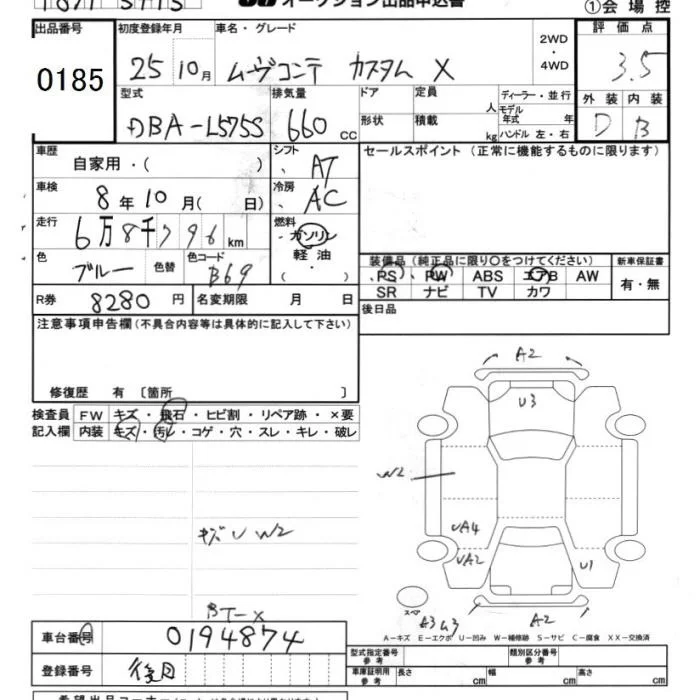 オークション出品申込書
①会場控
出品番号
0185
初度登録年月
25 10月
車名・グレード
ムーヴコンテ カスタム X
2WD
・
4WD
評価点
3.5
型式
DBA-L575S
排気量
660 cc
ドア
形状
定員 人
積載 kg
ディーラー・並行
モデル
年式 年
ハンドル 左・右
外装 内装
D B
車歴
自家用・( )
シフト
AT
セールスポイント (正常に機能するものに限ります)
車検
8年10月( 日)
冷房
AC
走行
6万8千796km
燃料
ガソリン
軽油
・
( )
色
ブルー
色替
色コード
B69
装備品 (純正品に限り○をつけてください)
PS PW ABS エアB AW
SR ナビ TV カワ
新車保証書
有・無
R券
8280円
名変期限 月 日
後日品
注意事項申告欄 (不具合内容等は具体的に記入して下さい)
修復歴 有 〔箇所 〕
検査員
記入欄
FW キズ・飛石・ヒビ割・リペア跡・×要
内装 キズ・汚レ・コゲ・穴・スレ・キレ・破レ
キズU W2
BT-X
A2
U3
W2
UA4
UA2
U1
スペア
A2
A-キズ E-エクボ U-凹み W-補修跡 S-サビ C-腐食 XX-交換済
車台番号
0194874
登録番号
後日
型式指定番号
参考
類別区分番号
参考
車庫証明用
参考
長さ cm
幅 cm
高さ cm